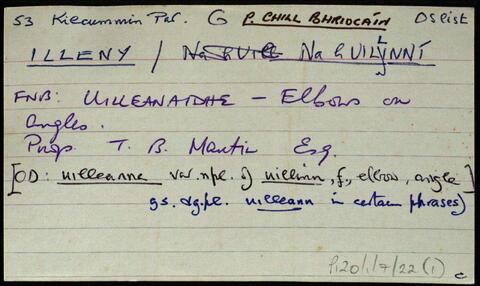 53 Kilcummin Par. G P. CHILL BHRIOCÁIN OS6ist
ILLENY / Na hUill Na hUILINNÍ
FNB: UILLEANAIDHE – Elbows or
Angles.
Prop T. B. Martin Esq.
[OD: uilleanna var. npl. of uillinn, f., elbow, angle
gs. & g.pl. uilleann in certain phrases]
P120/1/7/22(1) c